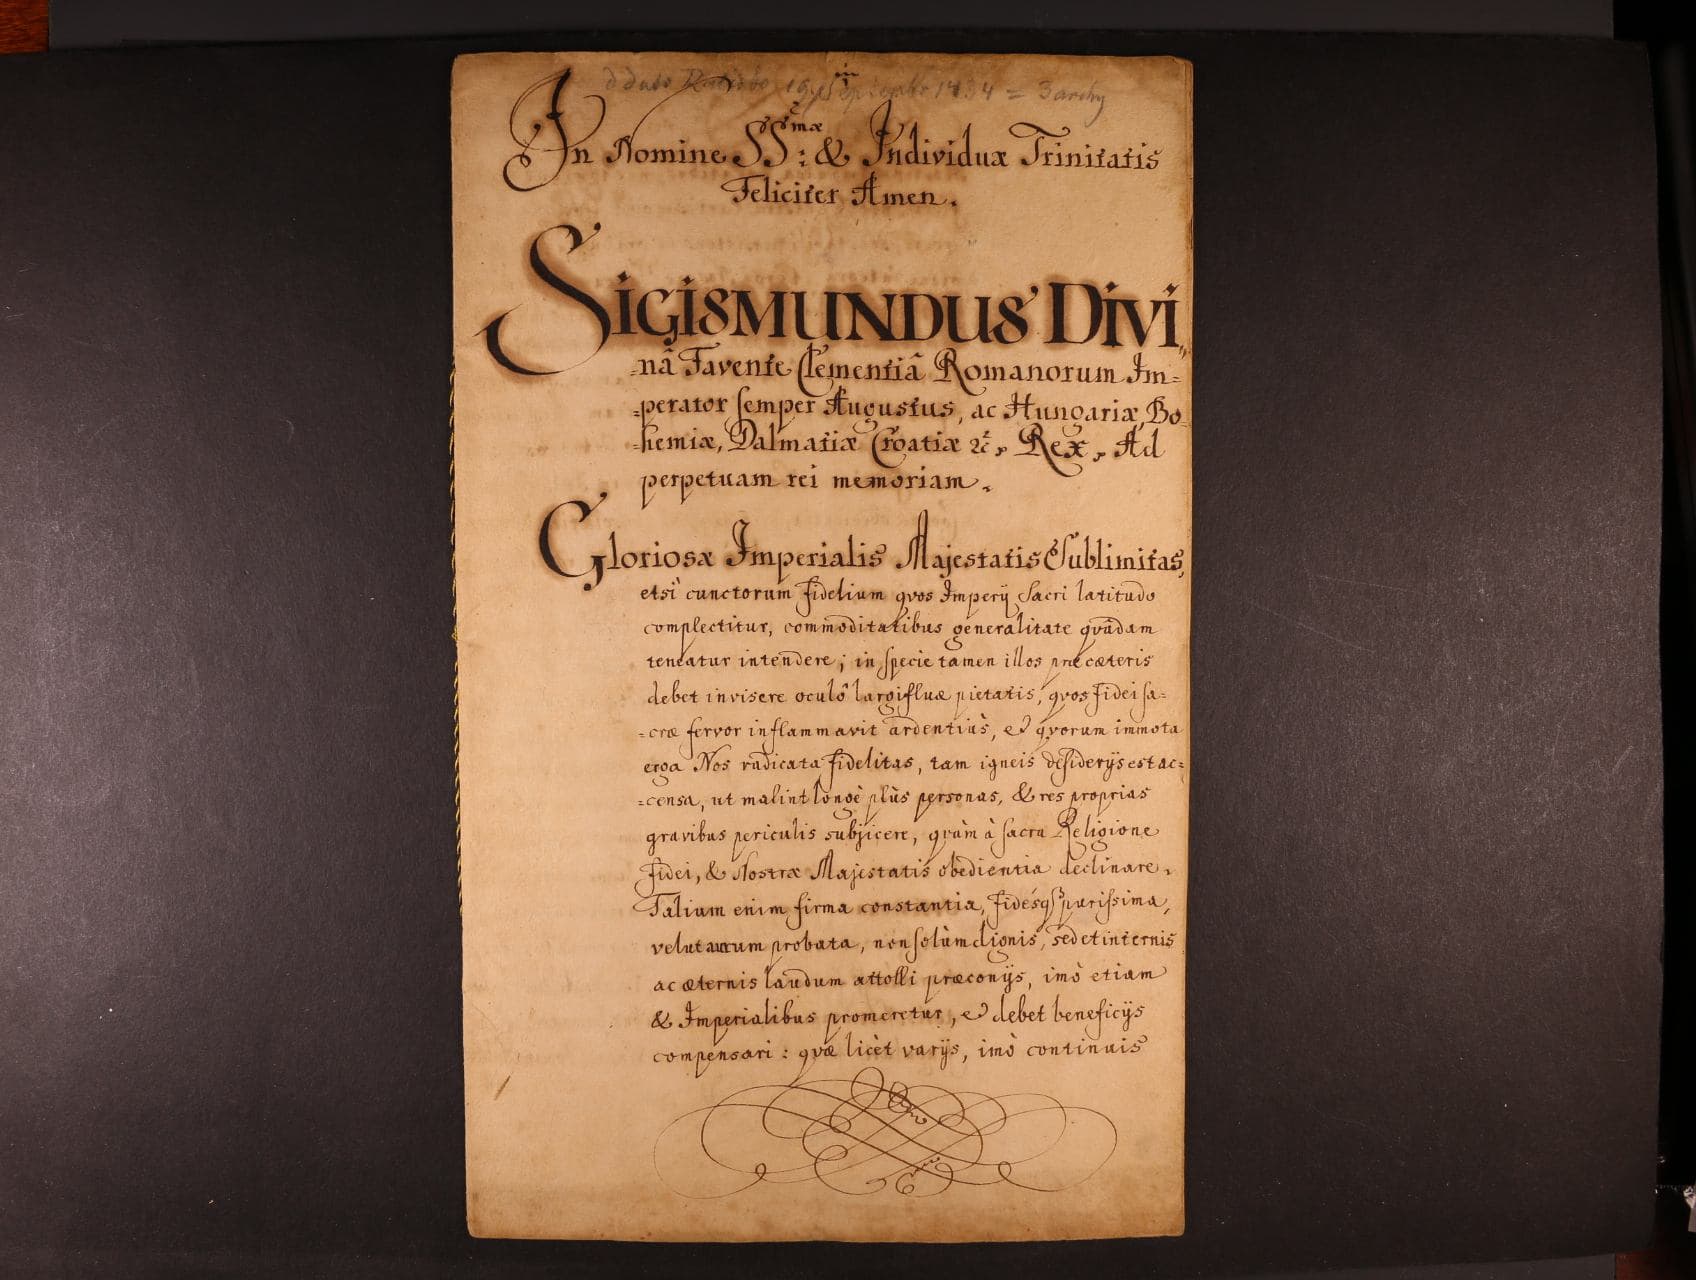 19 Septembr 1434 = 3 archy
In Nomine SS:mæ & Individuæ Trinitatis
Feliciter Amen.
SIGISMUNDUS DIVI„
=nâ Favente Clementiâ Romanorum Im=
=perator semper Augustus, ac Hungariæ, Bo=
=hemiæ, Dalmatiæ Croatiæ &c, Rex, Ad
perpetuam rei memoriam.
Gloriosæ Imperialis Majestatis Sublimitas,
etsi cunctorum fidelium qvos Imperij Sacri latitudo
complectitur, commoditatibus generalitate qvâdam
teneatur intendere; in specie tamen illos præ cæteris
debet invisere oculô largifluæ pietatis, qvos fidei sa=
=cræ fervor inflammavit ardentiùs, et qvorum immota
erga Nos radicata fidelitas, tam igneis desiderijs est ac=
=censa, ut malint longè plùs personas, & res proprias
gravibus periculis subjicere, qvàm à sacra Religione
fidei, & Nostræ Majestatis obedientia declinare.
Talium enim firma constantia, fidésq3 purissima,
velut aurum probata, non solùm dignis, sed et internis
ac æternis laudum attolli præconijs, imò etiam
& Imperialibus promeretur, et debet beneficijs
compensari: qvæ licèt varijs, imò continuis